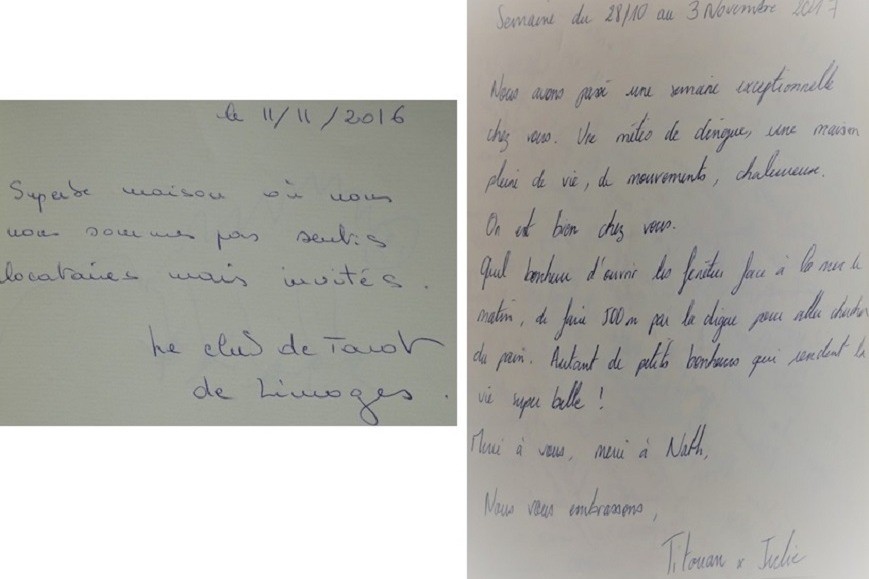 le 11/11/2016
Superbe maison où nous
nous sommes pas sentis
locataires mais invités.
Le club de Tarot
de Limoges.
Semaine du 28/10 au 3 Novembre 2017
Nous avons passé une semaine exceptionnelle
chez vous. Une météo de dingue, une maison
pleine de vie, de mouvements, chaleureuse.
On est bien chez vous.
Quel bonheur d'ouvrir les fenêtres face à la mer le
matin, de faire 500m par la digue pour aller chercher
du pain. Autant de petits bonheurs qui rendent la
vie super belle !
Merci à vous, merci à Nath,
Nous vous embrassons,
Titouan x Julie